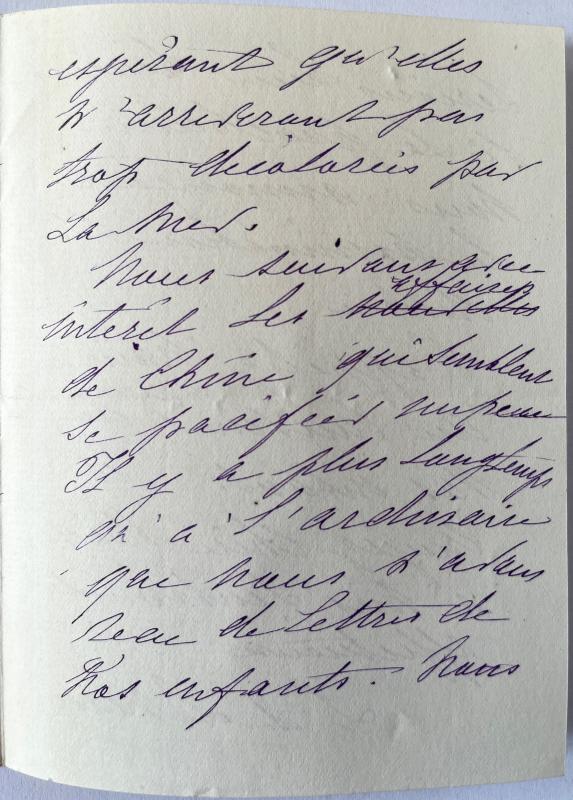 espérant qu'elles
n'arriveront pas
trop décolorées par
la mer.
Nous suivons avec
affaires
intérêt les nouvelles
de Chine qui semblent
se pacifier un peu
Il y a plus longtemps
qu'à l'ordinaire
que nous n'avons
reçu de lettres de
nos enfants. Nous